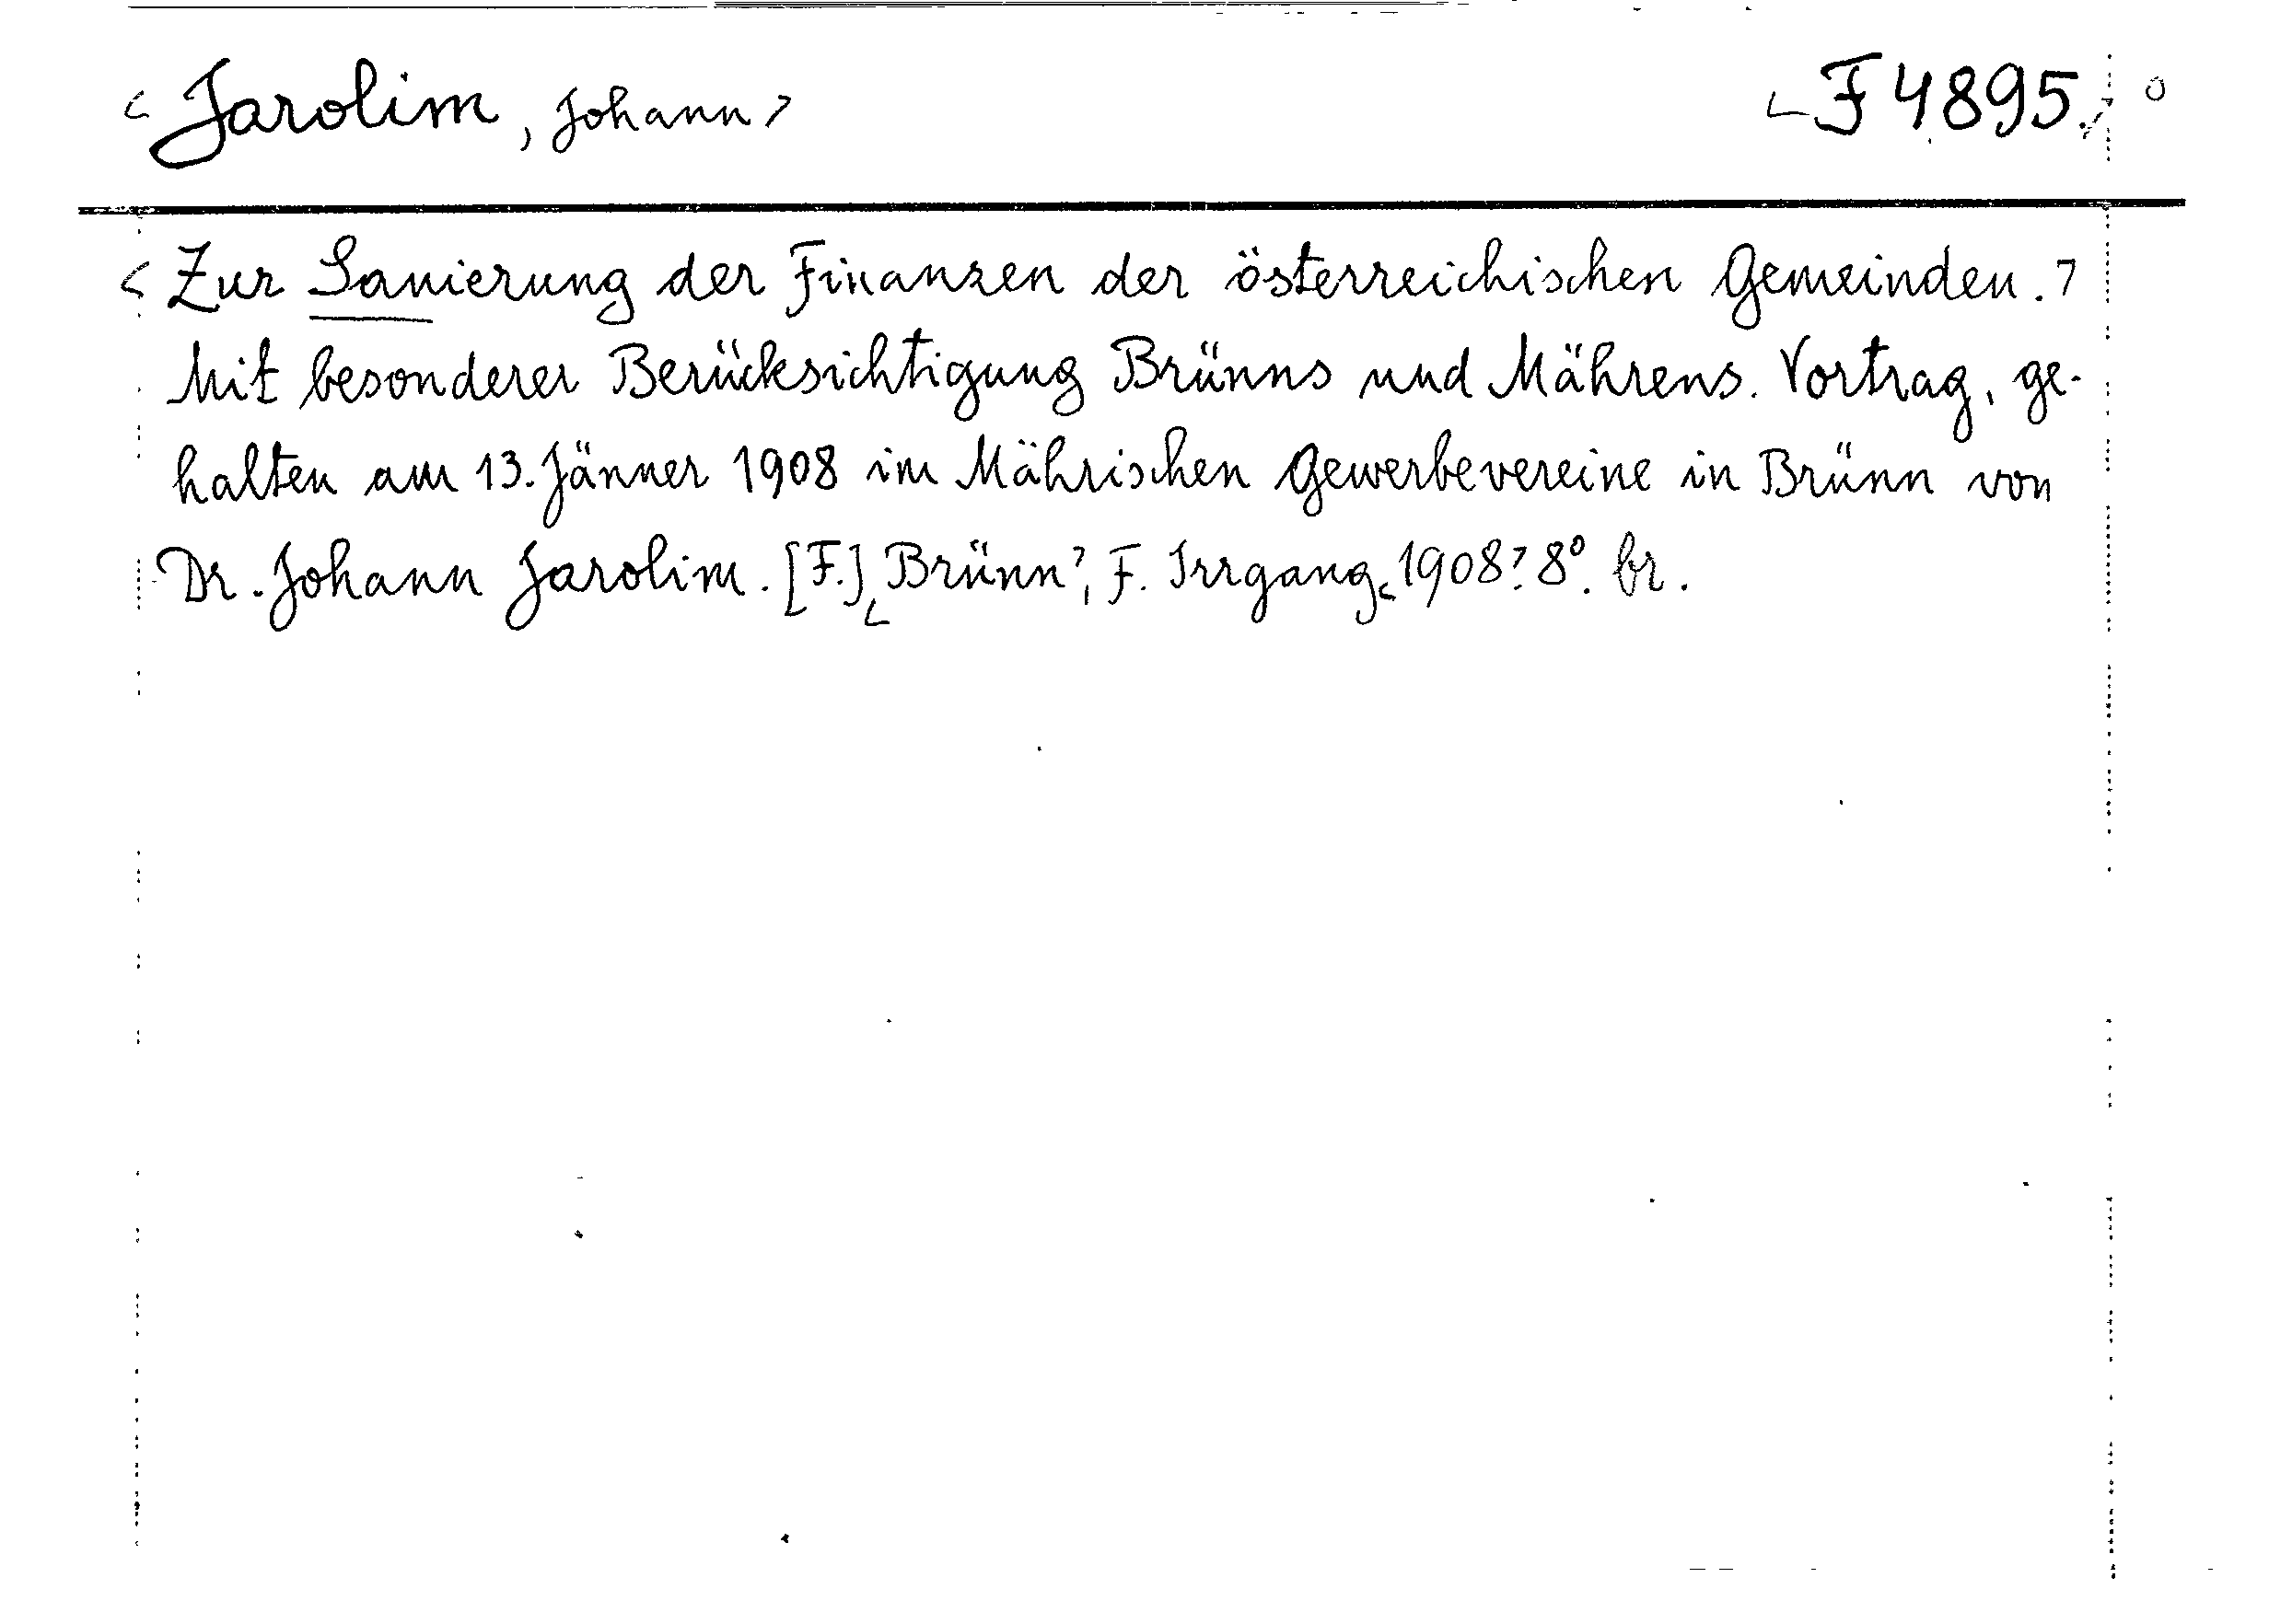 <Jarolim, Johann> <F 4895.>
<Zur Sanierung der Finanzen der österreichischen Gemeinden.>
Mit besonderer Berücksichtigung Brünns und Mährens. Vortrag, ge-
halten am 13. Jänner 1908 im Mährischen Gewerbevereine in Brünn von
Dr. Johann Jarolim. [F.] <Brünn>, F. Irrgang, <1908>. 8°. br.